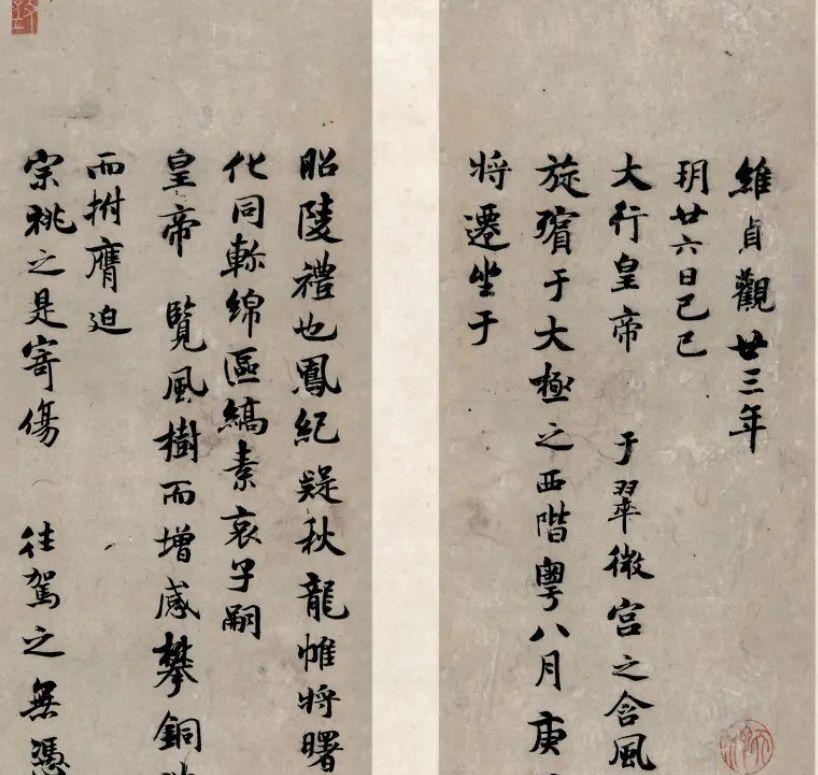 維貞觀廿三年
玥廿六日己巳
大行皇帝 于翠微宮之含風
旋殯于大極之西階粵八月庚
將遷坐于
昭陵禮也鳳紀疑秋龍帷將曙
化同軫綿區縞素哀子嗣
皇帝 覽風樹而增感攀銅
而拊膺迫
宗祧之是寄傷 往駕之無憑